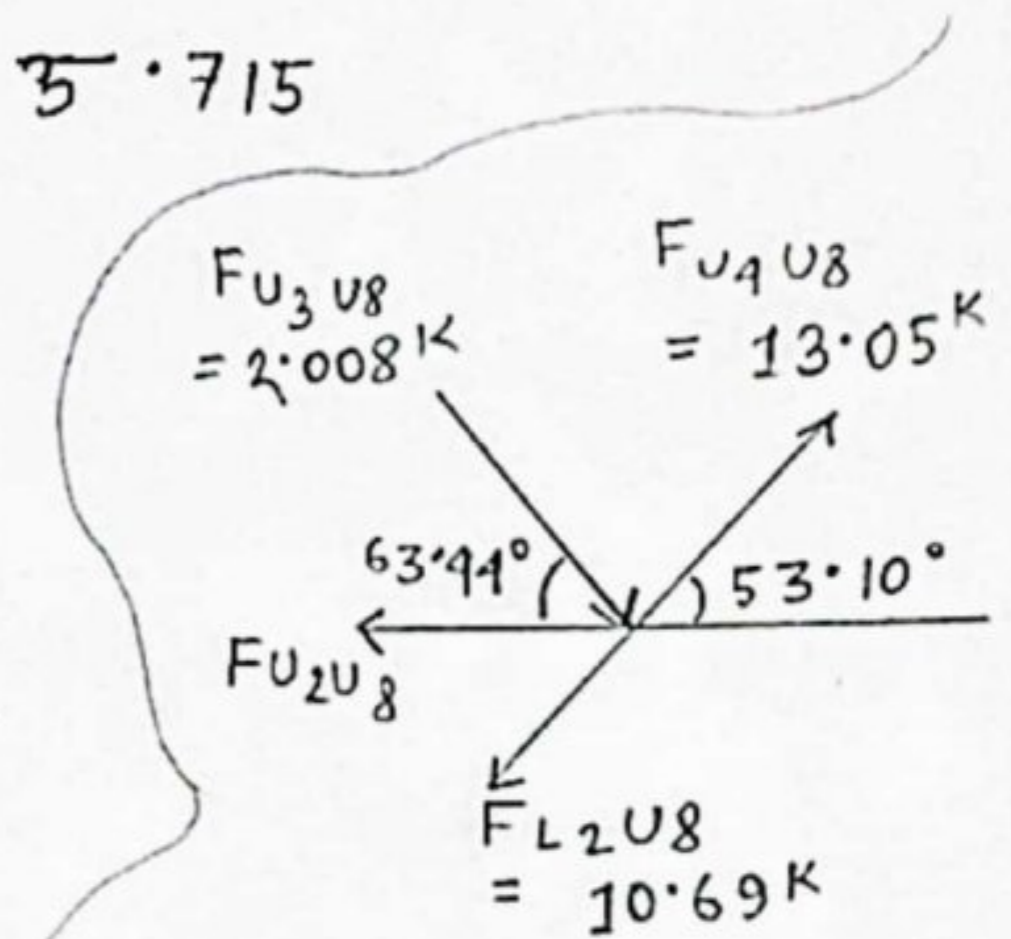 5.715
FU3U8
= 2.008K
FU4U8
= 13.05K
63.44°
53.10°
FU2U8
FL2U8
= 10.69K